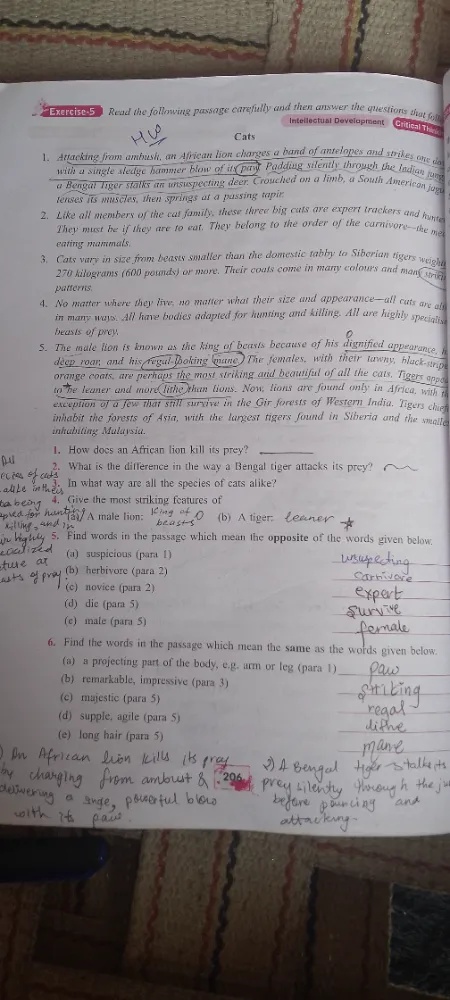 Exercise-5 Read the following passage carefully and then answer the questions that
Intellectual Development Critical
H.W
Cats
1. Attacking from ambush, an African lion charges a band of antelopes and strikes one
with a single sledge hammer blow of its paw. Padding silently through the Indian
a Bengal Tiger stalks an unsuspecting deer. Crouched on a limb, a South American
tenses its muscles, then springs at a passing tapir.
2. Like all members of the cat family, these three big cats are expert trackers and
They must be if they are to eat. They belong to the order of the carnivore—the
eating mammals.
3. Cats vary in size from beasts smaller than the domestic tabby to Siberian tigers
270 kilograms (600 pounds) or more. Their coats come in many colours and many
patterns.
4. No matter where they live, no matter what their size and appearance—all cats are
in many ways. All have bodies adapted for hunting and killing. All are highly
beasts of prey.
5. The male lion is known as the king of beasts because of his dignified appearance,
deep roar, and his regal-looking mane. The females, with their tawny,
orange coats, are perhaps the most striking and beautiful of all the cats. Tigers
to be leaner and more lithe than lions. Now, lions are found only in Africa, with
exception of a few that still survive in the Gir forests of Western India. Tigers
inhabit the forests of Asia, with the largest tigers found in Siberia and the
inhabiting Malaysia.
1. How does an African lion kill its prey?
2. What is the difference in the way a Bengal tiger attacks its prey?
3. In what way are all the species of cats alike?
4. Give the most striking features of
(a) A male lion: King of beasts (b) A tiger: leaner
5. Find words in the passage which mean the opposite of the words given below.
(a) suspicious (para 1)
(b) herbivore (para 2) Carnivore
(c) novice (para 2) expert
(d) die (para 5) survive
(e) male (para 5) female
of cats
alike in
being
for
killing, and
highly
of prey
6. Find the words in the passage which mean the same as the words given below.
(a) a projecting part of the body, e.g. arm or leg (para 1) paw
(b) remarkable, impressive (para 3) striking
(c) majestic (para 5) regal
(d) supple, agile (para 5) lithe
(e) long hair (para 5) mane
An African lion kills its pray
by charging from ambust &
delivering a powerful blow
with its paw.
206
2) A Bengal tiger stalks its
prey silently through the
before and
attacking.